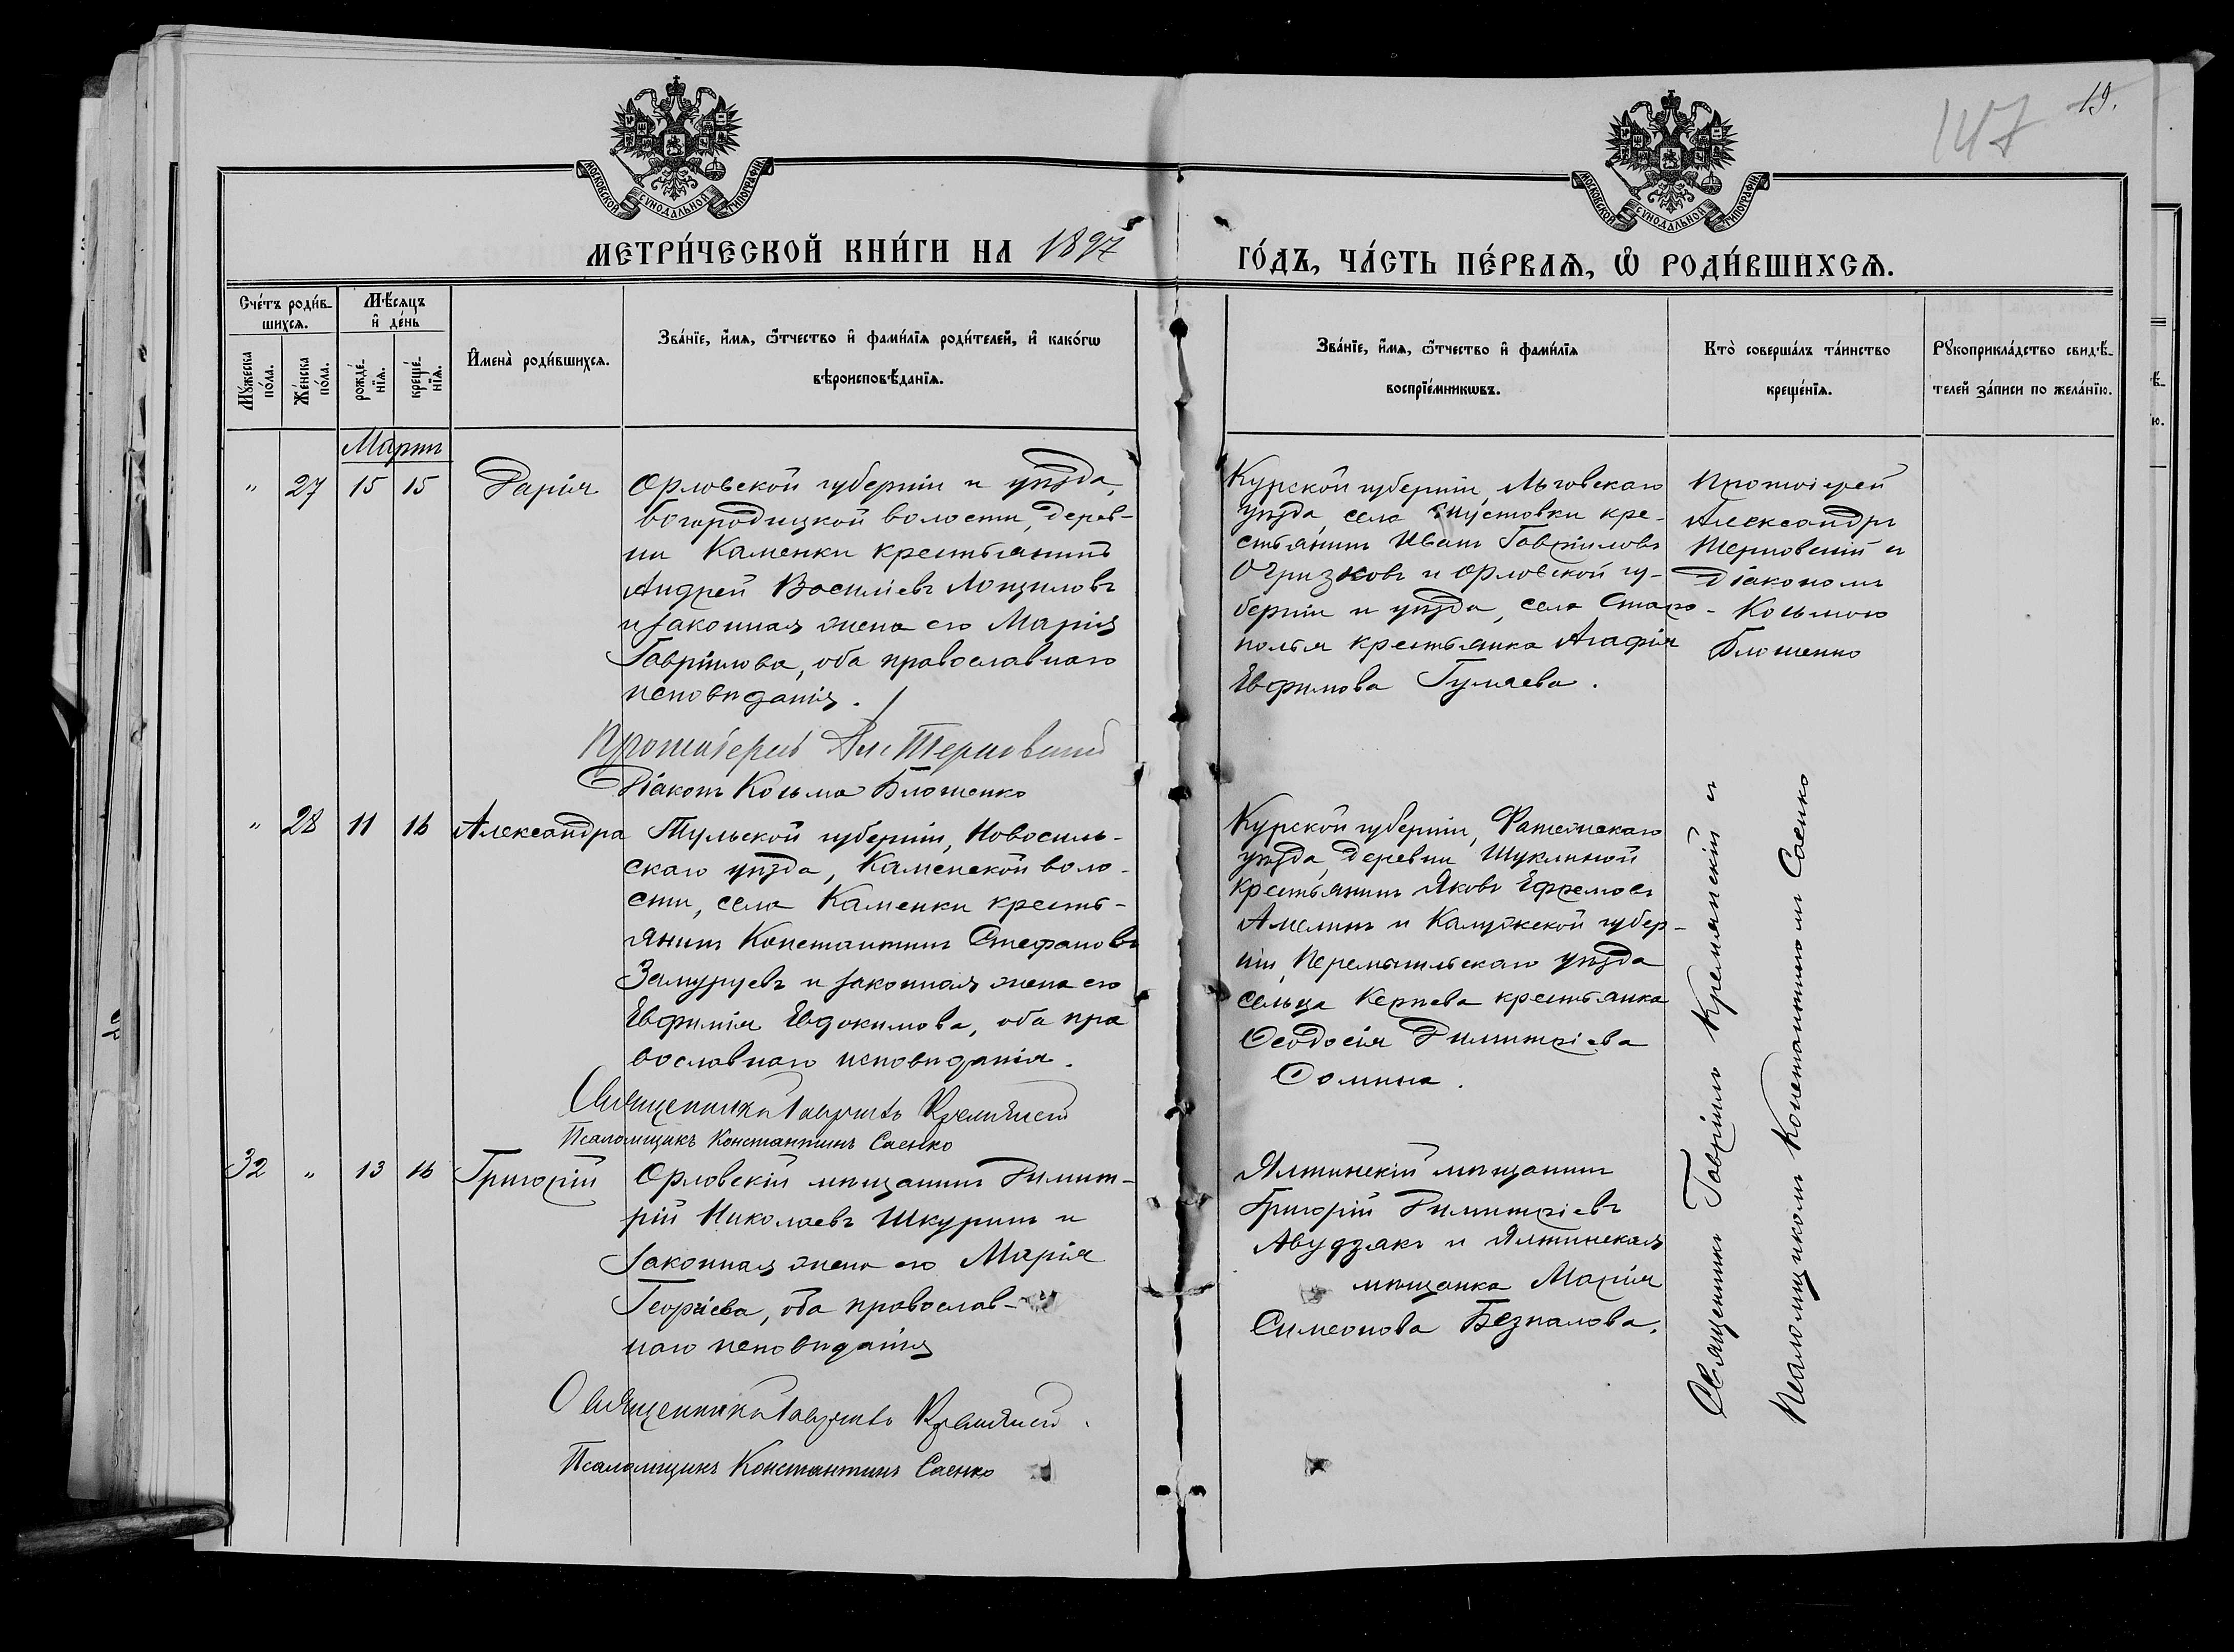 147
19.
МОСКОВСКОЙ СѴНОДАЛЬНОЙ ТИПОГРАФІИ
МОСКОВСКОЙ СѴНОДАЛЬНОЙ ТИПОГРАФІИ
МЕТРИ́ЧЕСКОЙ КНИ́ГИ НА 1897
ГО́ДЪ, ЧА́СТЬ ПЕ́РВАѦ, Ѽ РОДИ́ВШИХСѦ.
Сче́тъ роди́в-
шихсѧ.
Мꙋ́жеска
по́ла.
Же́нска
по́ла.
Мѣ́сѧцъ
и҆ де́нь
рожде́-
нїѧ.
креще́-
нїѧ.
И҆мена̀ роди́вшихсѧ.
Зва́нїе, и҆́мѧ, ѻ҆́тчество и҆ фами́лїѧ роди́телей, и҆ како́гѡ
вѣроисповѣ́данїѧ.
Зва́нїе, и҆́мѧ, ѻ҆́тчество и҆ фами́лїѧ
воспрїе́мникѡвъ.
Кто̀ соверша́лъ та́инство
креще́нїѧ.
Рꙋкоприкла́дство свидѣ́-
телей за́писи по жела́нїю.
Мартъ
" 27 15 15 Дарія
Орловской губерніи и уѣзда,
богородицкой волости, дерев-
ни Каменки крестьянинъ
Андрей Василіевъ Лощиловъ
и законная жена его Марія
Гавріилова, оба православнаго
исповѣданія.
Протоіерей Ал. Терновскій
Діаконъ Косьма Блошенко
Курской губерніи, Льговскаго
уѣзда, села кре-
стьянинъ Иванъ Гавріиловъ
Огризковъ и Орловской гу-
берніи и уѣзда, села Старо-
полья крестьянка Агафія
Евфимова Гуляева.
Протоіерей
Александръ
Терновскій и
Діакономъ
Косьмою
Блошенко
" 28 11 16 Александра
Тульской губерніи, Новосиль-
скаго уѣзда, Каменской воло-
сти, села Каменки кресть-
янинъ Константинъ Стефановъ
Замуруевъ и законная жена его
Евфимія Евдокимова, оба пра
вославнаго исповѣданія.
Священникъ Гавріилъ Кремянскій
Псаломщикъ Константинъ Саенко
Курской губерніи, Фатежскаго
уѣзда, деревни Шуклиной
крестьянинъ Яковъ Ефремовъ
Амелинъ и Калужской губер-
ніи, Перемышльскаго уѣзда
сельца крестьянка
Ѳеодосія Димитріева
Сомина.
32 " 13 16 Григорій
Орловскій мѣщанинъ Димит-
рій Николаевъ Шкуринъ и
законная жена его Марія
Георгіева, оба православ-
наго исповѣданія
Священникъ Гавріилъ Кремянскій.
Псаломщикъ Константинъ Саенко
Ялтинскій мѣщанинъ
Григорій Димитріевъ
и Ялтинская
мѣщанка Марія
Симеонова Безпалова.
Священникъ Гавріилъ Кремянскій и
Псаломщикомъ Константиномъ Саенко